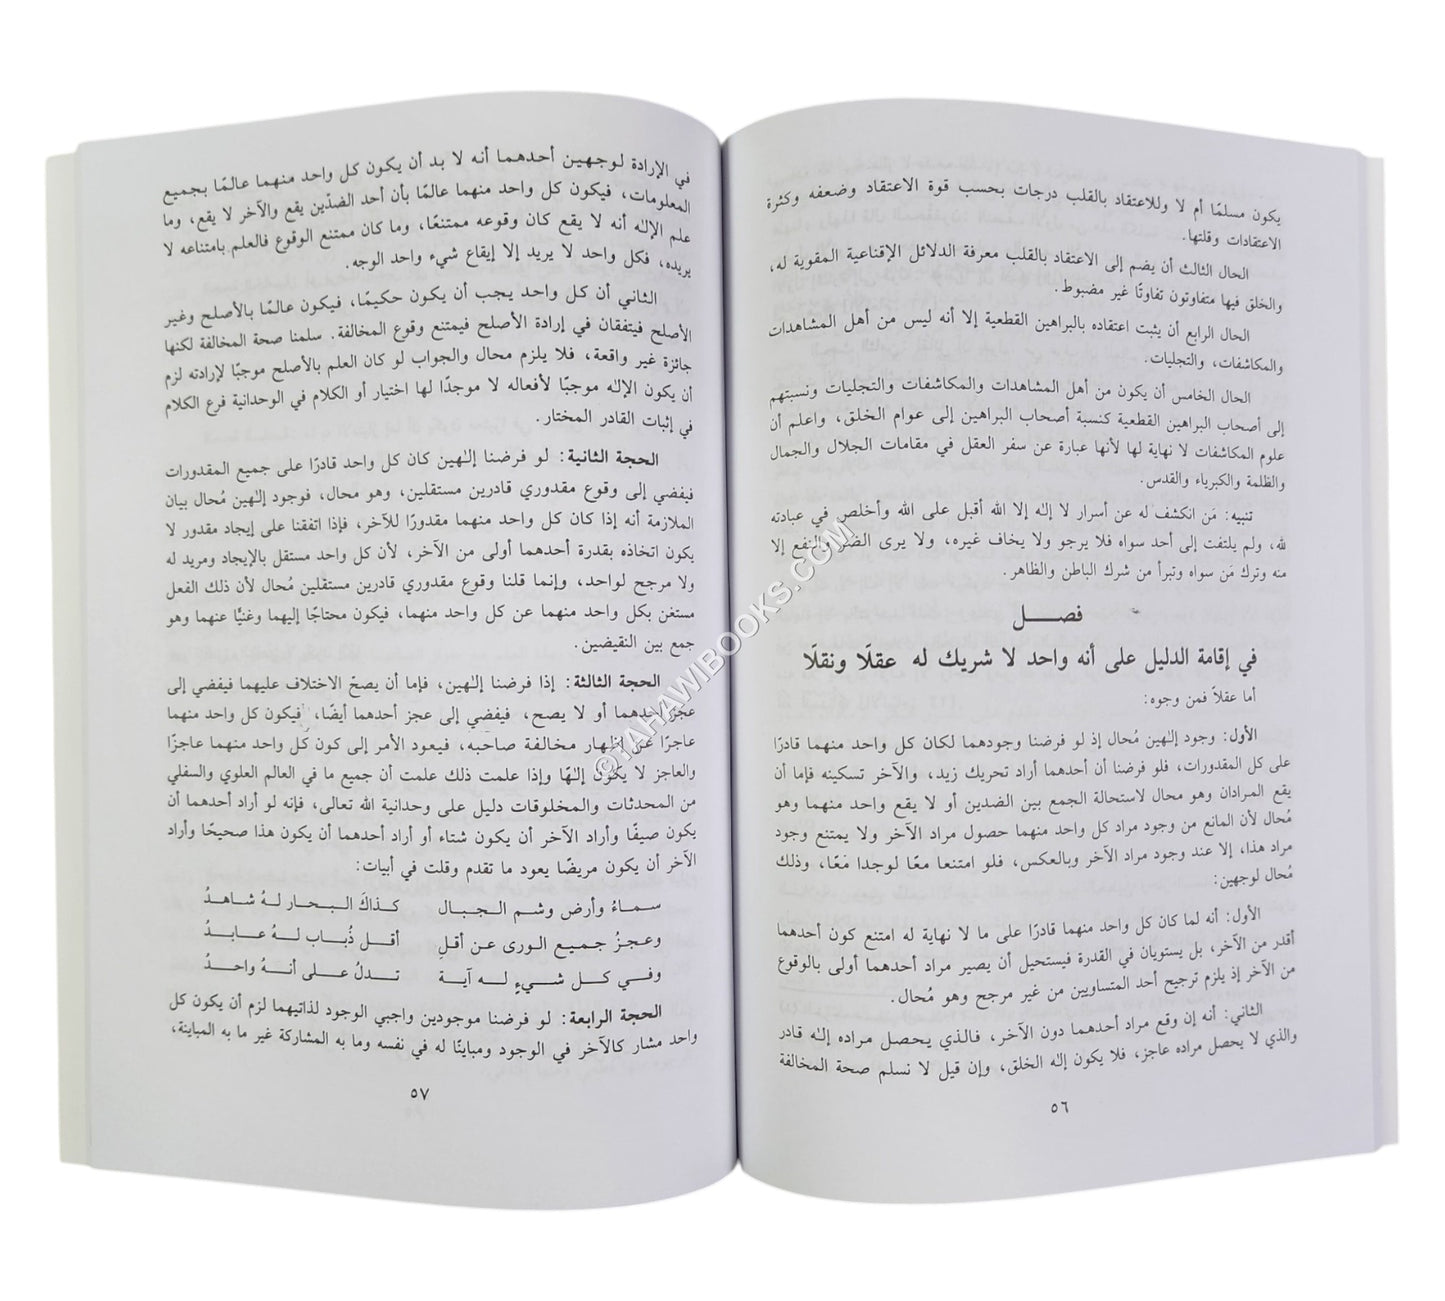 يكون مسلمًا أم لا وللاعتقاد بالقلب درجات بحسب قوة الاعتقاد وضعفه وكثرة
الاعتقادات وقلتها.
الحال الثالث أن يضم إلى الاعتقاد بالقلب معرفة الدلائل الإقناعية المقوية له،
والخلق فيها متفاوتون تفاوتًا غير مضبوط.
الحال الرابع أن يثبت اعتقاده بالبراهين القطعية إلا أنه ليس من أهل المشاهدات
والمكاشفات، والتجليات.
الحال الخامس أن يكون من أهل المشاهدات والمكاشفات والتجليات ونسبتهم
إلى أصحاب البراهين القطعية كنسبة أصحاب البراهين إلى عوام الخلق، واعلم أن
علوم المكاشفات لا نهاية لها لأنها عبارة عن سفر العقل في مقامات الجلال والجمال
والظلمة والكبرياء والقدس.
تنبيه: مَن انكشف له عن أسرار لا إله إلا الله أقبل على الله وأخلص في عبادته
لله، ولم يلتفت إلى أحد سواه فلا يرجو ولا يخاف غيره، ولا يرى الضر والنفع إلا
منه وترك مَن سواه وتبرأ من شرك الباطن والظاهر.
فصل
في إقامة الدليل على أنه واحد لا شريك له عقلًا ونقلًا
أما عقلاً فمن وجوه:
الأول: وجود إلهين مُحال إذ لو فرضنا وجودهما لكان كل واحد منهما قادرًا
على كل المقدورات، فلو فرضنا أن أحدهما أراد تحريك زيد، والآخر تسكينه فإما أن
يقع المرادان وهو محال لاستحالة الجمع بين الضدين أو لا يقع واحد منهما وهو
مُحال لأن المانع من وجود مراد كل واحد منهما حصول مراد الآخر ولا يمتنع وجود
مراد هذا، إلا عند وجود مراد الآخر وبالعكس، فلو امتنعا معًا لوجدا مَعًا، وذلك
مُحال لوجهين:
الأول: أنه لما كان كل واحد منهما قادرًا على ما لا نهاية له امتنع كون أحدهما
أقدر من الآخر، بل يستويان في القدرة فيستحيل أن يصير مراد أحدهما أولى بالوقوع
من الآخر إذ يلزم ترجيح أحد المتساويين من غير مرجح وهو مُحال.
الثاني: أنه إن وقع مراد أحدهما دون الآخر، فالذي يحصل مراده إله قادر
والذي لا يحصل مراده عاجز، فلا يكون إله الخلق، وإن قيل لا نسلم صحة المخالفة
٥٦
في الإرادة لوجهين أحدهما أنه لا بد أن يكون كل واحد منهما عالمًا بجميع
المعلومات، فيكون كل واحد منهما عالمًا بأن أحد الضدّين يقع والآخر لا يقع، وما
علم الإله أنه لا يقع كان وقوعه ممتنعًا، وما كان ممتنع الوقوع فالعلم بامتناعه لا
يريده، فكل واحد لا يريد إلا إيقاع شيء واحد الوجه.
الثاني أن كل واحد يجب أن يكون حكيمًا، فيكون عالمًا بالأصلح وغير
الأصلح فيتفقان في إرادة الأصلح فيمتنع وقوع المخالفة. سلمنا صحة المخالفة لكنها
جائزة غير واقعة، فلا يلزم محال والجواب لو كان العلم بالأصلح موجبًا لإرادته لزم
أن يكون الإله موجبًا لأفعاله لا موجدًا لها اختيار أو الكلام في الوحدانية فرع الكلام
في إثبات القادر المختار.
الحجة الثانية: لو فرضنا إلهين كان كل واحد قادرًا على جميع المقدورات
فيفضي إلى وقوع مقدوري قادرين مستقلين، وهو محال، فوجود إلهين مُحال بيان
الملازمة أنه إذا كان كل واحد منهما مقدورًا للآخر، فإذا اتفقنا على إيجاد مقدور لا
يكون اتخاذه بقدرة أحدهما أولى من الآخر، لأن كل واحد مستقل بالإيجاد ومريد له
ولا مرجح لواحد، وإنما قلنا وقوع مقدوري قادرين مستقلين مُحال لأن ذلك الفعل
مستغن بكل واحد منهما عن كل واحد منهما، فيكون محتاجًا إليهما وغنيًّا عنهما وهو
جمع بين النقيضين.
الحجة الثالثة: إذا فرضنا إلهين، فإما أن يصحّ الاختلاف عليهما فيفضي إلى
عجز أحدهما أو لا يصح، فيفضي إلى عجز أحدهما أيضًا، فيكون كل واحد منهما
عاجزًا عن إظهار مخالفة صاحبه، فيعود الأمر إلى كون كل واحد منهما عاجزًا
والعاجز لا يكون إلهًا وإذا علمت ذلك علمت أن جميع ما في العالم العلوي والسفلي
من المحدثات والمخلوقات دليل على وحدانية الله تعالى، فإنه لو أراد أحدهما أن
يكون صيفًا وأراد الآخر أن يكون شتاء أو أراد أحدهما أن يكون هذا صحيحًا وأراد
الآخر أن يكون مريضًا يعود ما تقدم وقلت في أبيات:
سماءُ وأرض وشم الجبال كذاكَ البحار لهُ شاهدُ
وعجزُ جميع الورى عن أقلِ أقل ذُباب لهُ عابدُ
وفي كل شيءٍ له آية تدلُ على أنهُ واحدُ
الحجة الرابعة: لو فرضنا موجودين واجبي الوجود لذاتيهما لزم أن يكون كل
واحد مشار كالآخر في الوجود ومباينًا له في نفسه وما به المشاركة غير ما به المباينة،
٥٧
©TAHAWIBOOKS.COM